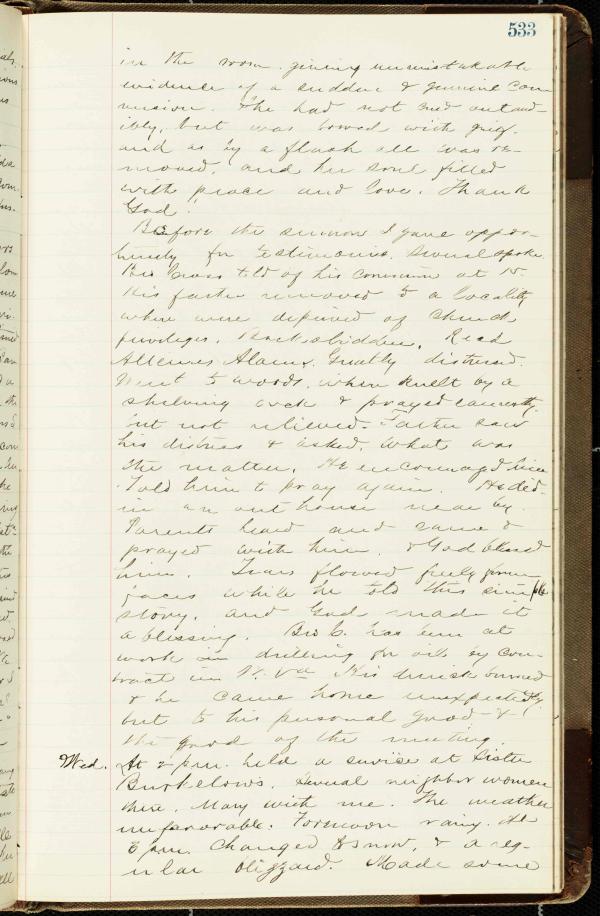 533
in the room giving unmistakable
evidence of a sudden & genuine con-
version. She had not cried out aud-
ibly, but was bowed with grief
and as by a flash all was re-
moved, and her soul filled
with peace and love. Thank
God!
Before the sermon I gave oppor-
tunity for testimonies. Several spoke.
Bro told of his conversion at 15.
His father removed to a locality
where were deprived of church
privileges. Backslidden. Read
Alleines Alarm. Greatly distressed.
Went to woods, when knelt by a
shelving rock & prayed earnestly.
but not relieved. Father saw
his distress & asked, what was
the matter. He encouraged him
Told him to pray again. He did
in an out house near by.
Parents heard and came &
prayed with him, & God blessed
him. Tears flowed freely from
faces while he told this simple
story, and God made it
a blessing. Bro C. has been at
work in drilling for oil by con-
tract in W. Va His burned
& he came home unexpectedly
but to his personal good &
the good of the meeting.
Wed. At 2 p.m. held a service at Sister
Burkelows. Several neighbor women
there. Mary with me. The weather
unfavorable. Forenoon rainy. At
6 p.m. changed to snow, & a reg-
ular blizzard. Made some